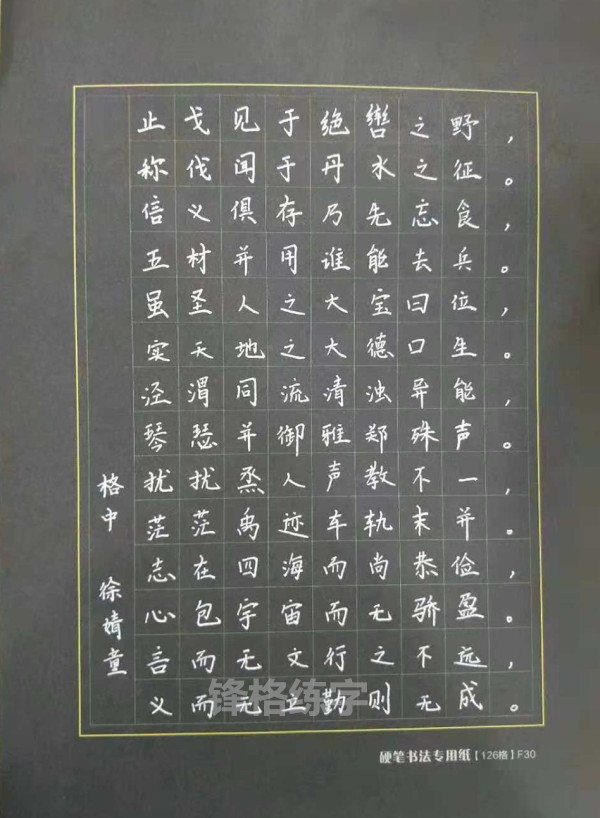 止戈见于绝辔之野，
称伐闻于丹水之征。
信义俱存乃先忘食，
五材并用谁能去兵。
虽圣人之大宝曰位，
实天地之大德口生。
泾渭同流清浊异能，
琴瑟并御雅郑殊声。
扰扰烝人声教不一，
茫茫禹迹车轨末并。
志在四海而尚恭俭，
心包宇宙而无骄盈。
言而无文行之不远，
义而无立勤则无成。
格中 徐婧童
锋格练字
硬笔书法专用纸【126格】F30